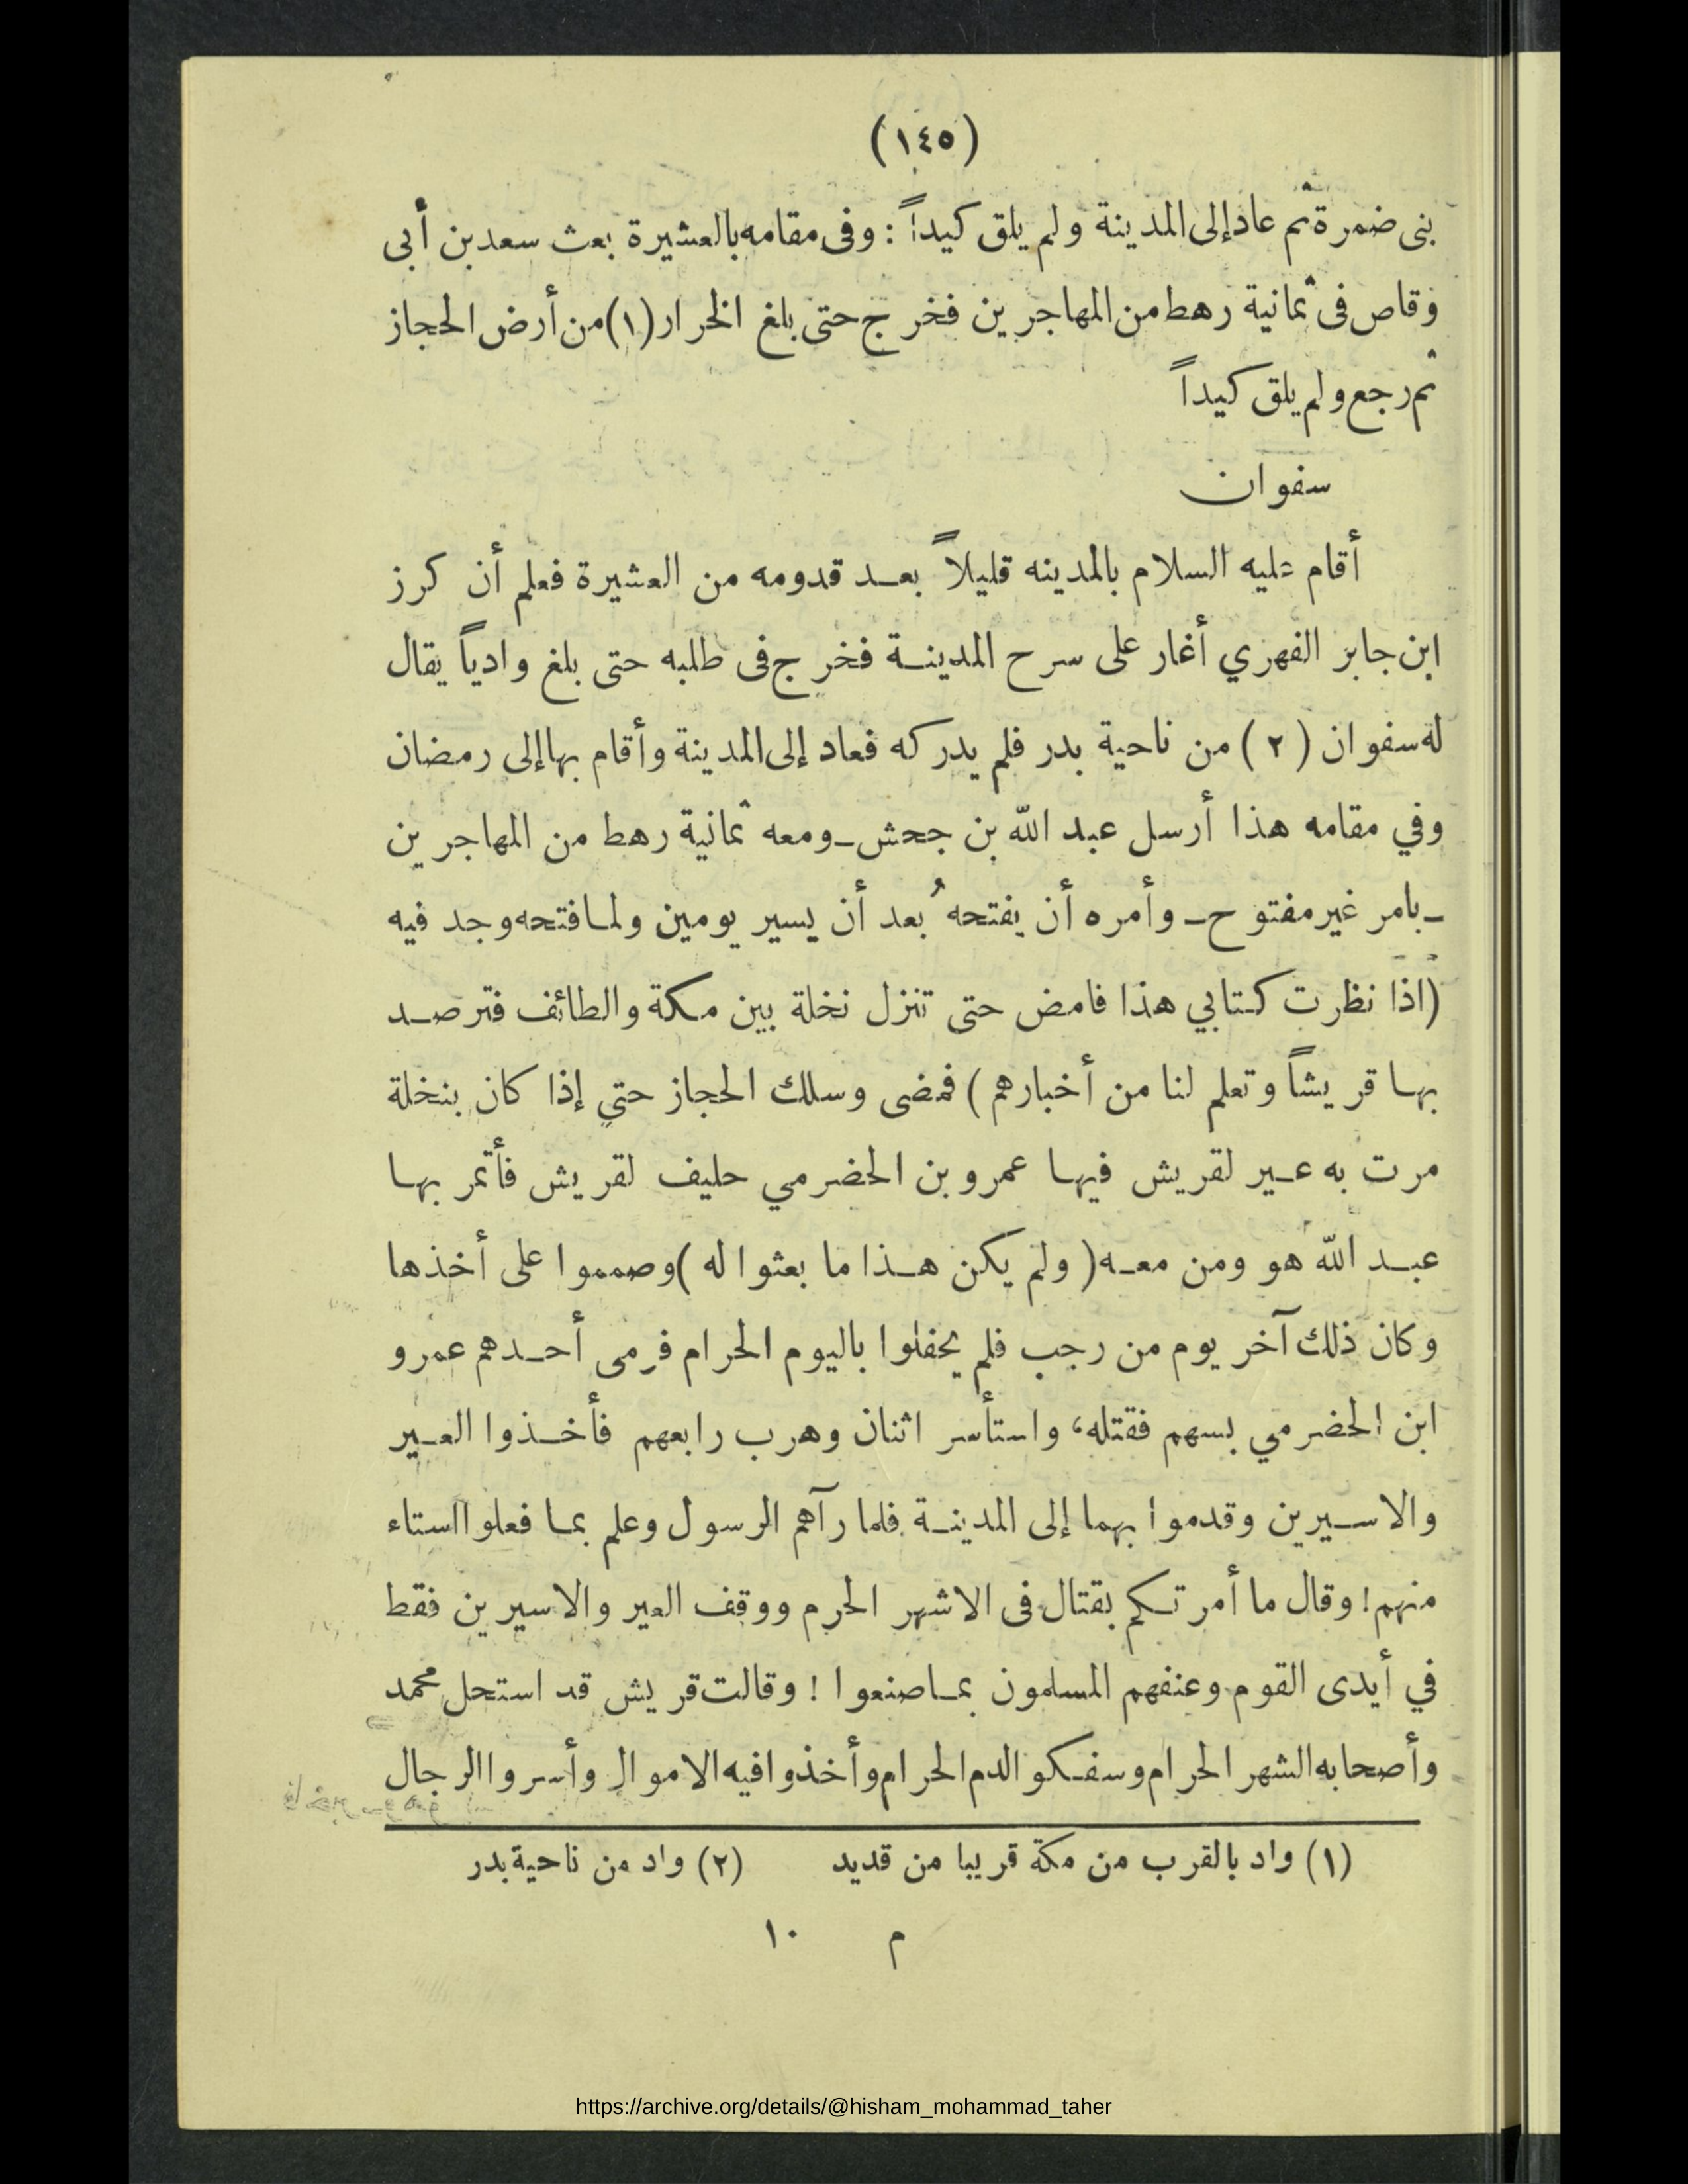 (١٤٥)
بنى ضمرة ثم عاد إلى المدينة ولم يلق كيداً : وفى مقامه بالعشيرة بعث سعد بن أبى
وقاص فى ثمانية رهط من المهاجرين فخرج حتى بلغ الخرار (١) من أرض الحجاز
ثم رجع ولم يلق كيداً
سفوان
أقام عليه السلام بالمدينه قليلاً بعد قدومه من العشيرة فعلم أن كرز
ابن جابر الفهري أغار على سرح المدينة فخرج فى طلبه حتى بلغ وادياً يقال
له سفوان (٢) من ناحية بدر فلم يدركه فعاد إلى المدينة وأقام بها إلى رمضان
وفي مقامه هذا أرسل عبد الله بن جحش ـ ومعه ثمانية رهط من المهاجرين
ـ بامر غير مفتوح ـ وأمره أن يفتحهُ بعد أن يسير يومين ولما فتحه وجد فيه
(اذا نظرت كتابي هذا فامض حتى تنزل نخلة بين مكة والطائف فترصد
بها قريشاً وتعلم لنا من أخبارهم) فمضى وسلك الحجاز حتي إذا كان بنخلة
مرت به عير لقريش فيها عمرو بن الحضرمي حليف لقريش فأتمر بها
عبد الله هو ومن معه ( ولم يكن هذا ما بعثوا له ) وصمموا على أخذها
وكان ذلك آخر يوم من رجب فلم يحفلوا باليوم الحرام فرمى أحدهم عمرو
ابن الحضرمي بسهم فقتله، واستأسر اثنان وهرب رابعهم فأخذوا العير
والاسيرين وقدموا بهما إلى المدينة فلما رآهم الرسول وعلم بما فعلوا استاء
منهم! وقال ما أمرتكم بقتال فى الاشهر الحرم ووقف العير والاسيرين فقط
في أيدى القوم وعنفهم المسلمون بما صنعوا ! وقالت قريش قد استحل محمد
وأصحابه الشهر الحرام وسفكو الدم الحرام وأخذوا فيه الاموال وأسروا الرجال
(١) واد بالقرب من مكة قريبا من قديد (٢) واد من ناحية بدر
م ١٠
https://archive.org/details/@hisham_mohammad_taher